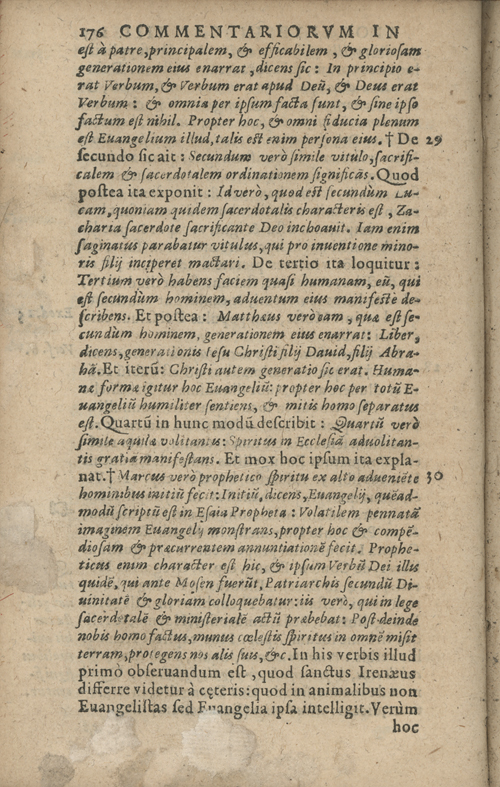 176 COMMENTARIORVM IN
est à patre, principalem, & efficabilem, & gloriosam
generationem eius enarrat, dicens sic: In principio e-
rat Verbum, & Verbum erat apud Deū, & Deus erat
Verbum: & omnia per ipsum facta sunt, & sine ipso
factum est nihil. Propter hoc, & omni fiducia plenum
est Euangelium illud, talis est enim persona eius. † De 29
secundo sic ait: Secundum verò simile vitulo, sacrifi-
calem & sacerdotalem ordinationem significās. Quod
postea ita exponit: Id verò, quod est secundùm Lu-
cam, quoniam quidem sacerdotalis characteris est, Za-
charia sacerdote sacrificante Deo inchoauit. Iam enim
saginatus parabatur vitulus, qui pro inuentione mino-
ris filij inciperet mactari. De tertio ita loquitur:
Tertium verò habens faciem quasi humanam, eū, qui
est secundùm hominem, aduentum eius manifestè de-
scribens. Et postea: Matthæus verò eam, quæ est se-
cundùm hominem, generationem eius enarrat: Liber,
dicens, generationis Iesu Christi filij Dauid, filij Abra-
hā. Et iterū: Christi autem generatio sic erat. Huma-
næ formæ igitur hoc Euangeliū: propter hoc per totū E-
uangeliū humiliter sentiens, & mitis homo separatus
est. Quartū in hunc modū describit: Quartū verò
simile aquilæ volitantis: Spiritus in Ecclesiā aduolitan-
tis gratiā manifestans. Et mox hoc ipsum ita expla-
nat. † Marcus verò prophetico spiritu ex alto adueniēte 30
hominibus initiū fecit: Initiū, dicens, Euangelij, quēad-
modū scriptū est in Esaia Propheta: Volatilem pennatā
imaginem Euangelij monstrans, propter hoc & compē-
diosam & præcurrentem annuntiationē fecit. Prophe-
ticus enim character est hic, & ipsum Verbū Dei illis
quidē, qui ante Mosen fuerūt, Patriarchis secundū Di-
uinitatē & gloriam colloquebatur: iis verò, qui in lege
sacerdotalē & ministerialē actū præbebat: Post deinde
nobis homo factus, munus cælestis spiritus in omnē misit
terram, protegens nos alis suis, &c. In his verbis illud
primò obseruandum est, quod sanctus Irenæus
differre videtur à cęteris: quod in animalibus non
Euangelistas sed Euangelia ipsa intelligit. Verùm
hoc